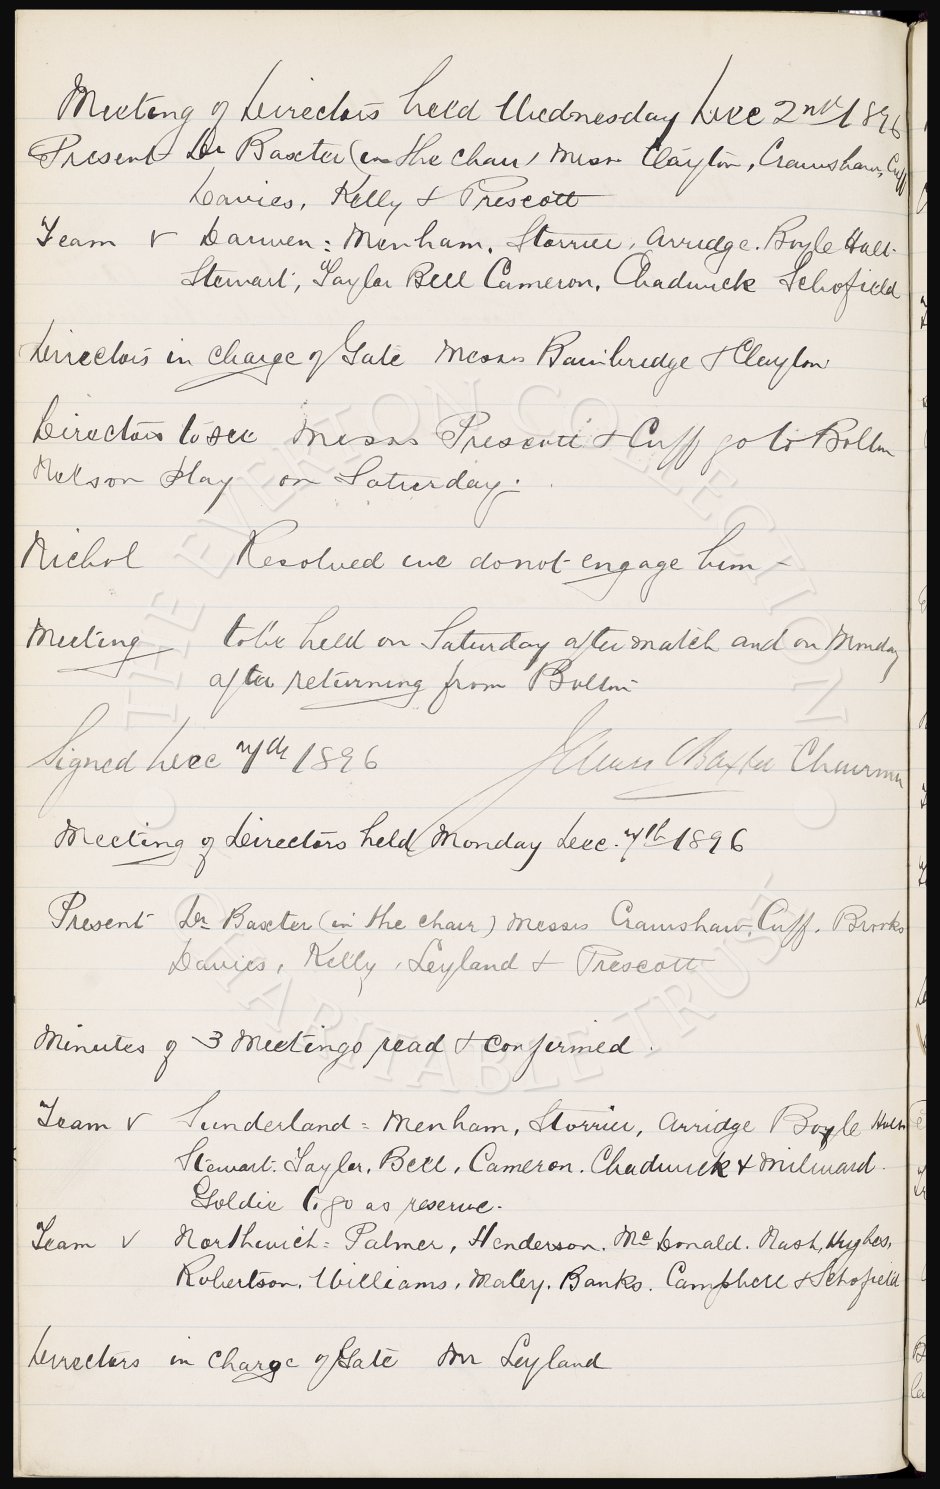 Meeting of Directors held Wednesday Dec 2nd 1896
Present Dr Baxter (in the chair) Messrs Clayton, Crawshaw, Cuff
Davies, Kelly & Prescott
Team v Darwen: Menham. Storrier, Arridge. Boyle Hall.
Stewart, Taylor Bell Cameron, Chadwick Schofield
Directors in charge of Gate Messrs Bainbridge & Clayton
Directors to see Messrs Prescott & Cuff go to Bolton
Nelson play on Saturday.
Nichol Resolved we do not engage him -
Meeting to be held on Saturday after match and on Monday
after returning from Bolton
Signed Dec 7th 1896 James C Baxter Chairman
Meeting of Directors held Monday Dec. 7th 1896
Present Dr Baxter (in the chair) Messrs Crawshaw, Cuff. Brooks
Davies, Kelly, Leyland & Prescott
Minutes of 3 Meetings read & confirmed.
Team v Sunderland = Menham, Storrier, Arridge Boyle
Stewart. Taylor, Bell, Cameron. Chadwick & Milward.
Goldie to go as reserve.
Team v Northwich = Palmer, Henderson. McDonald. Nash, Hughes,
Robertson. Williams. Maley. Banks. Campbell & Schofield
Directors in charge of Gate Mr Leyland
THE EVERTON COLLECTION
CHARITABLE TRUST